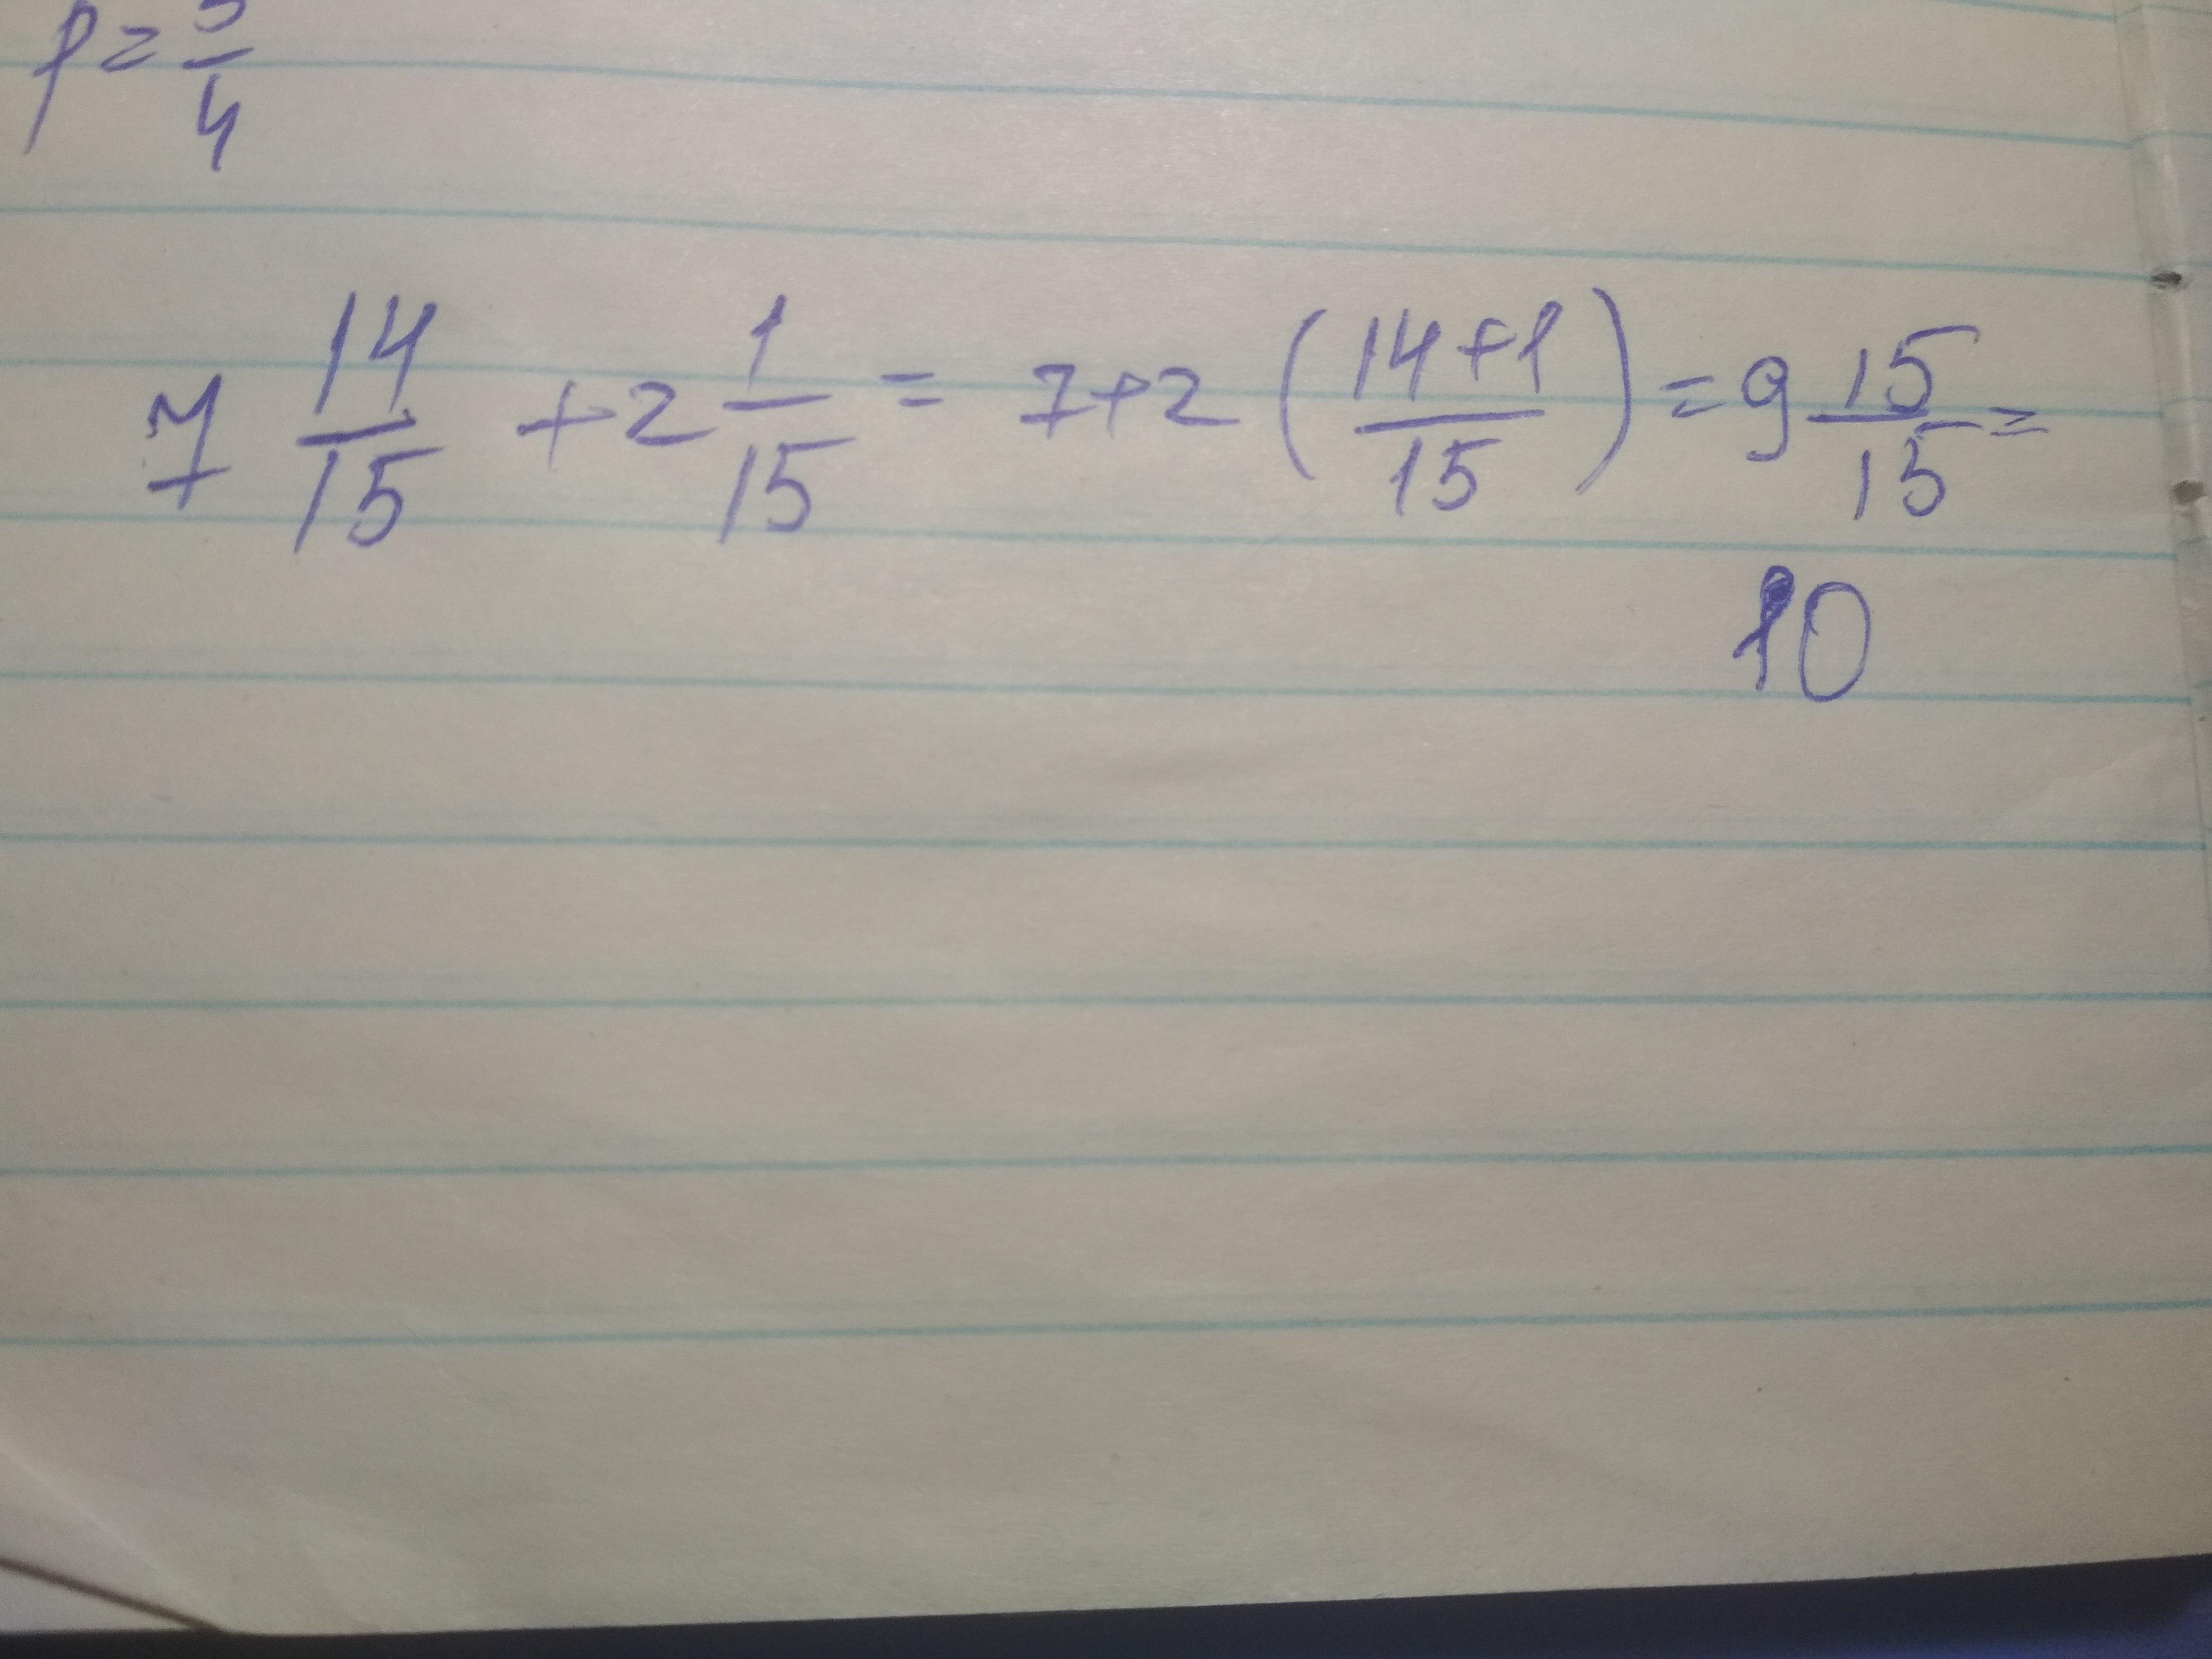 p = 5/4
7 14/15 + 2 1/15 = 7+2 (14+1/15) = 9 15/15 =
10